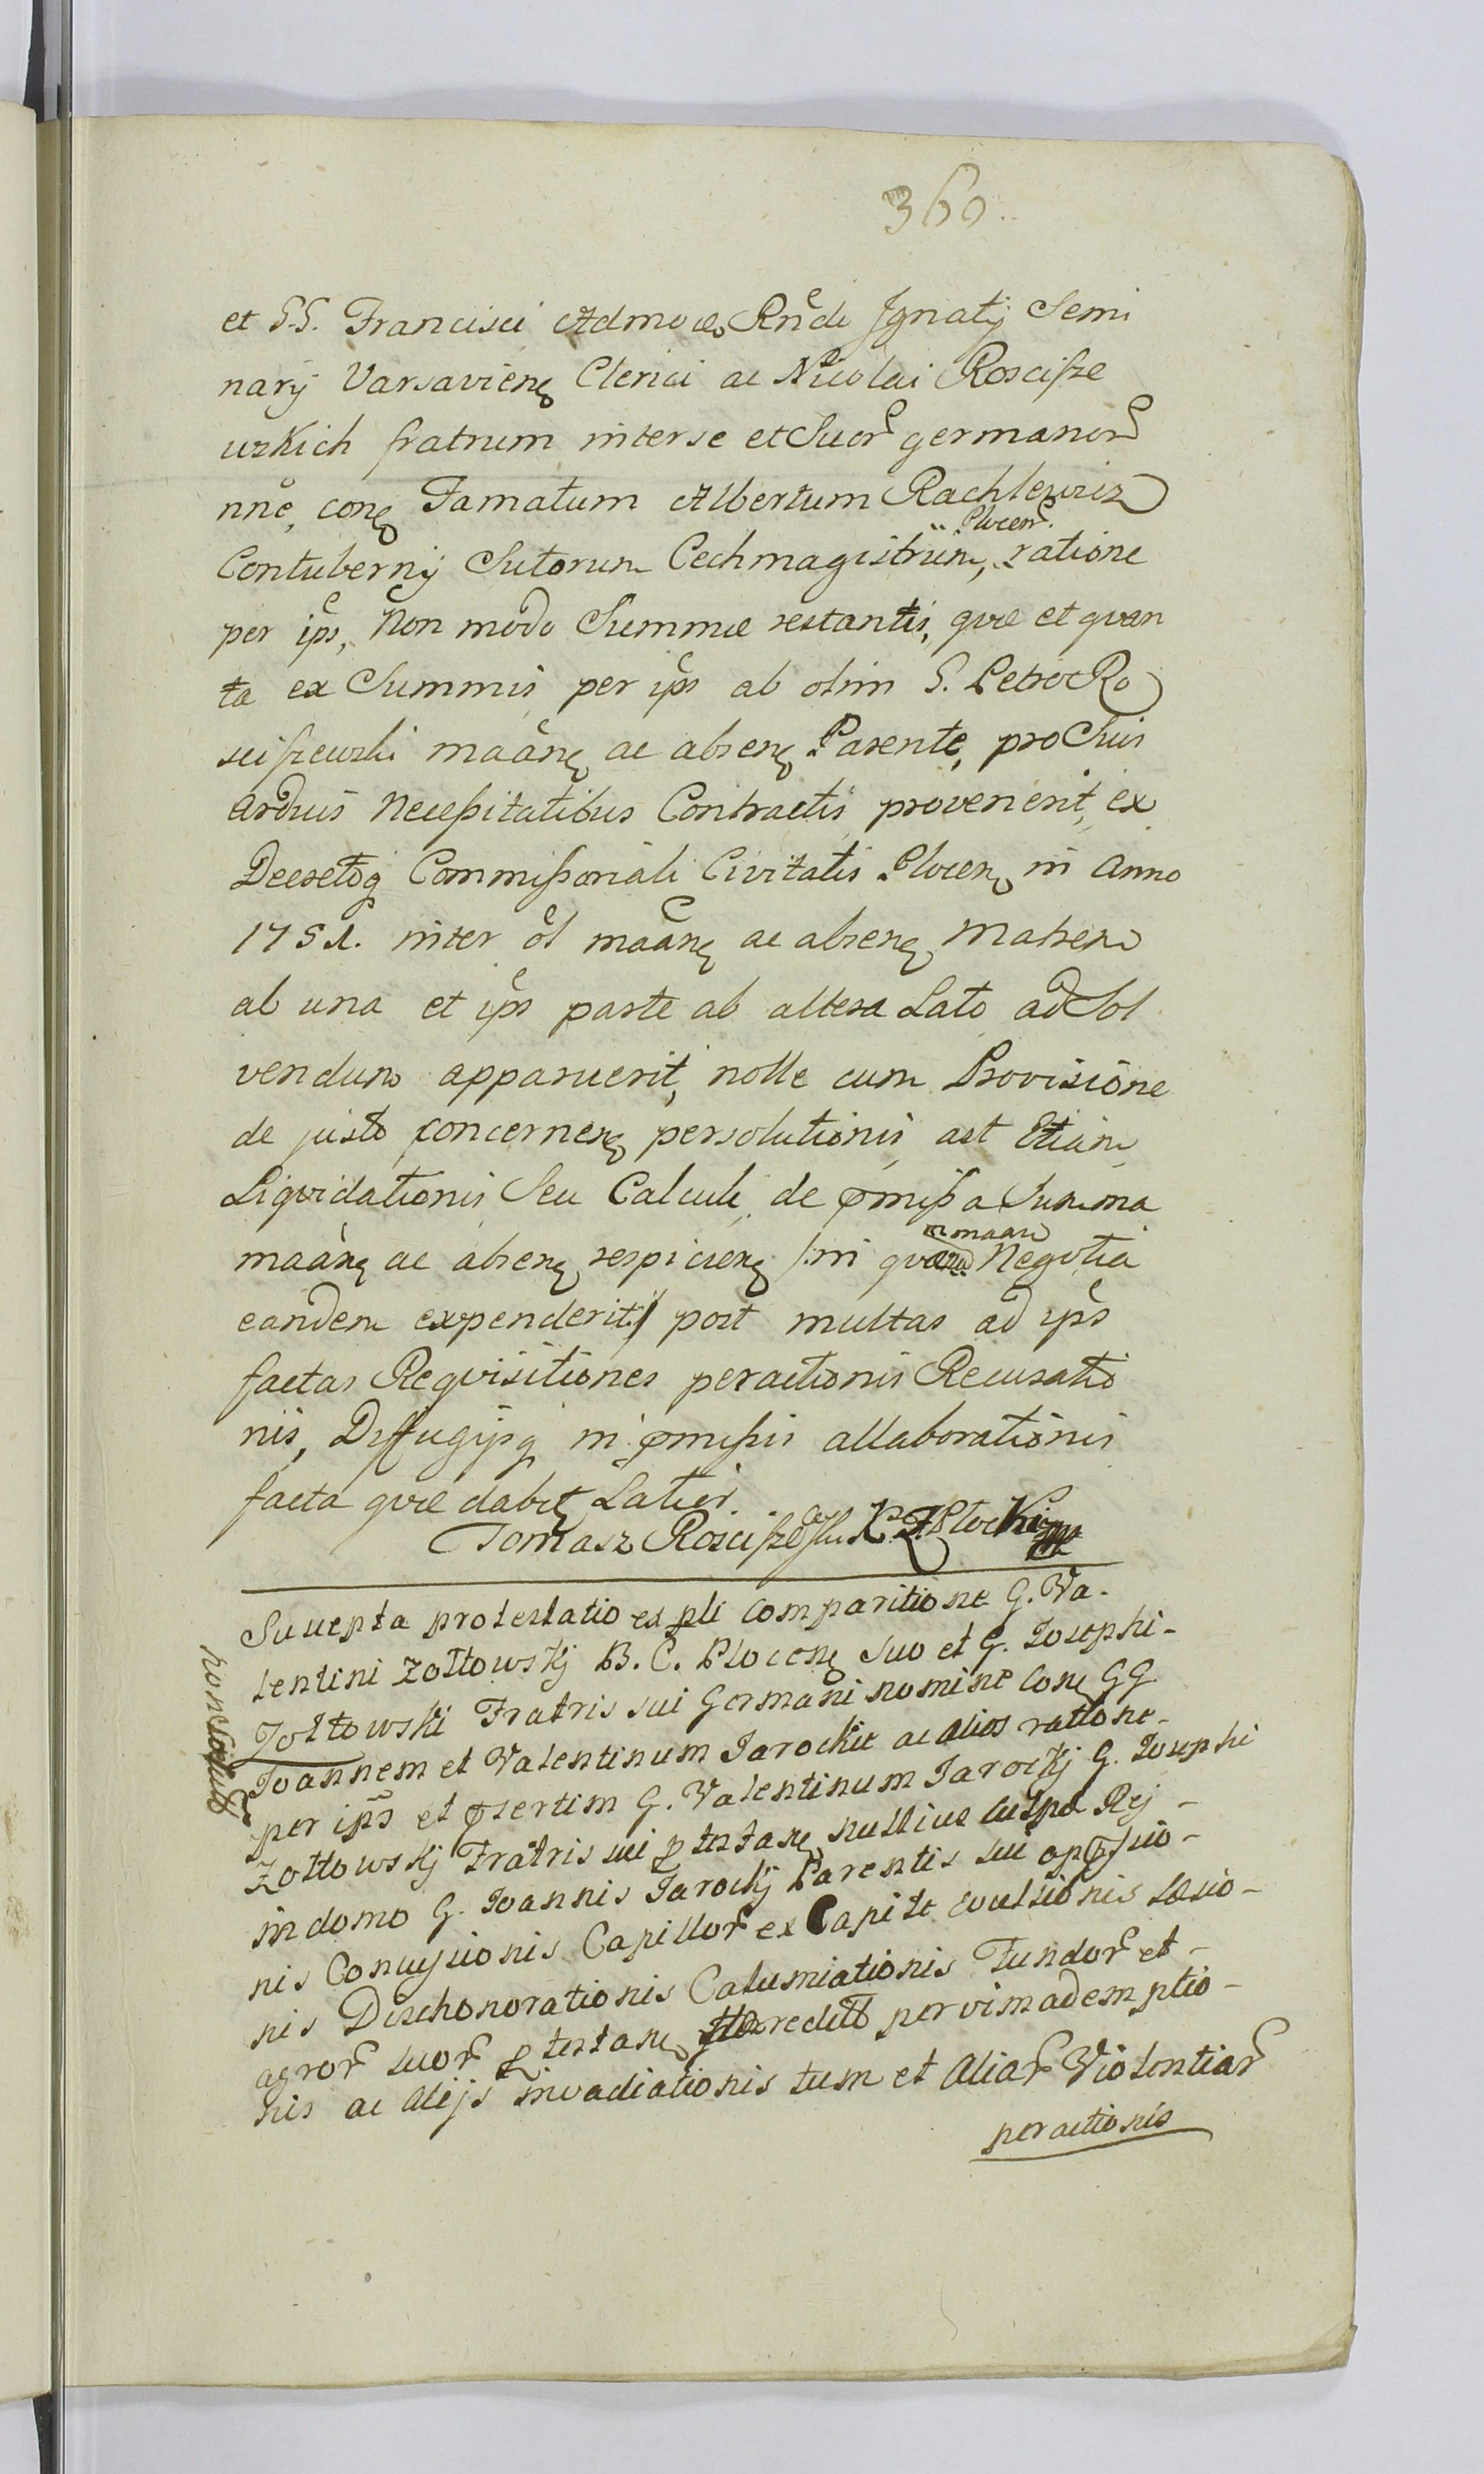 360.
et S.S. Francisci Admoe Rnde Ignatij Semi
narij Varsavien Clerici ac Nicolai Roscisze
wskich fratrum inter se et Suor germanor
nne, con Famatum Albertum Rachlewicz
Plocen.
Contubernij Sutorum Cechmagistrum, ratione
per ips, Non modo Summæ restantis, qvæ et qvan
ta ex Summis per ips ab olim S. Petro Ro
sciszewski maan ac absen Parente, pro Suis
arduis Necessitatibus Contractis provenerit, ex
Decretoq Commissoriali Civitatis Plocen in Anno
1751. inter ol maan ac absen Matrem
ab una et ips parte ab altera Lato ad Sol
vendum apparuerit, nolle cum Provisione
de justo concernen persolutionis ast Etiam
Liqvidationis Seu Calculi, de pmissa Summa
maan
maan ac absen respicien /:in qvam Negotia
eandem expenderit:/ post multas ad ips
factas Reqvisitiones peractionis Recusatio
nis, Diffugijsq in pmissis allaborationis
facta qvæ dabit Latior.
Tomasz Rosciszewski K. Z. Plocki mp
Suscepta protestatio ex pli Comparitione G. Va-
lentini Zołtowskj B. C. Plocen Suo et G. Josephi-
Zołtowski Fratris sui Germani nomine Con GG
Joannem et Valentinum Jarockie ac alios ratione-
per ips et psertim G. Valentinum Jarockj G. Josephi
Zołtowskj Fratris sui ptestan nullius culpa Rej-
in domo G. Joannis Jarockj Parentis sui opssio-
nis Concussionis Capillor ex Capite evulsionis Læsio-
nis Dischonorationis Calumiationis Fundor et-
agror suor ptestan redit per vim ademptio-
nis ac alijs invadiationis tum et aliar Violentiar
peractionis